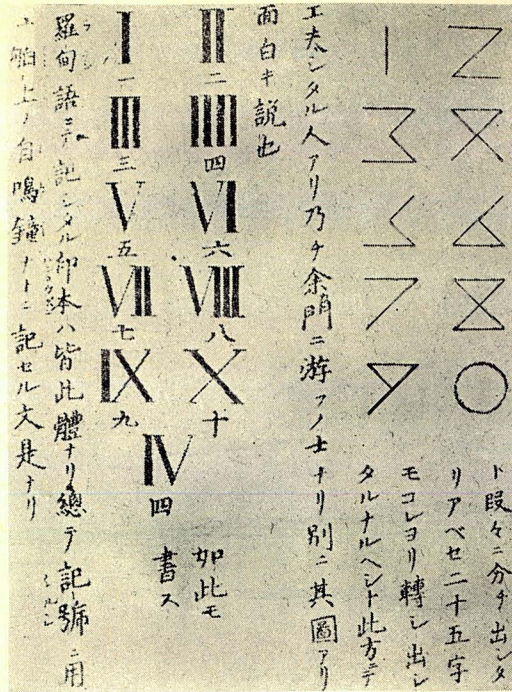 ト段々ニ分チ出シタ
リアベセ二十五字
モコレヨリ轉シ出シ
タルナルヘシト此方ニテ
工夫シタル人アリ乃チ余門ニ游フノ士ナリ別ニ其圖アリ
面白キ説也
II 二
I 一
IIII 四
III 三
VI 六
V 五
VIII 八
VII 七
X 十
IX 九
IV 四
如此モ
書ス
羅甸語ニテ記シタル印本ハ皆此體ナリ總テ記號ニ用
舶上ノ自鳴鐘ナトニ記セル文是ナリ